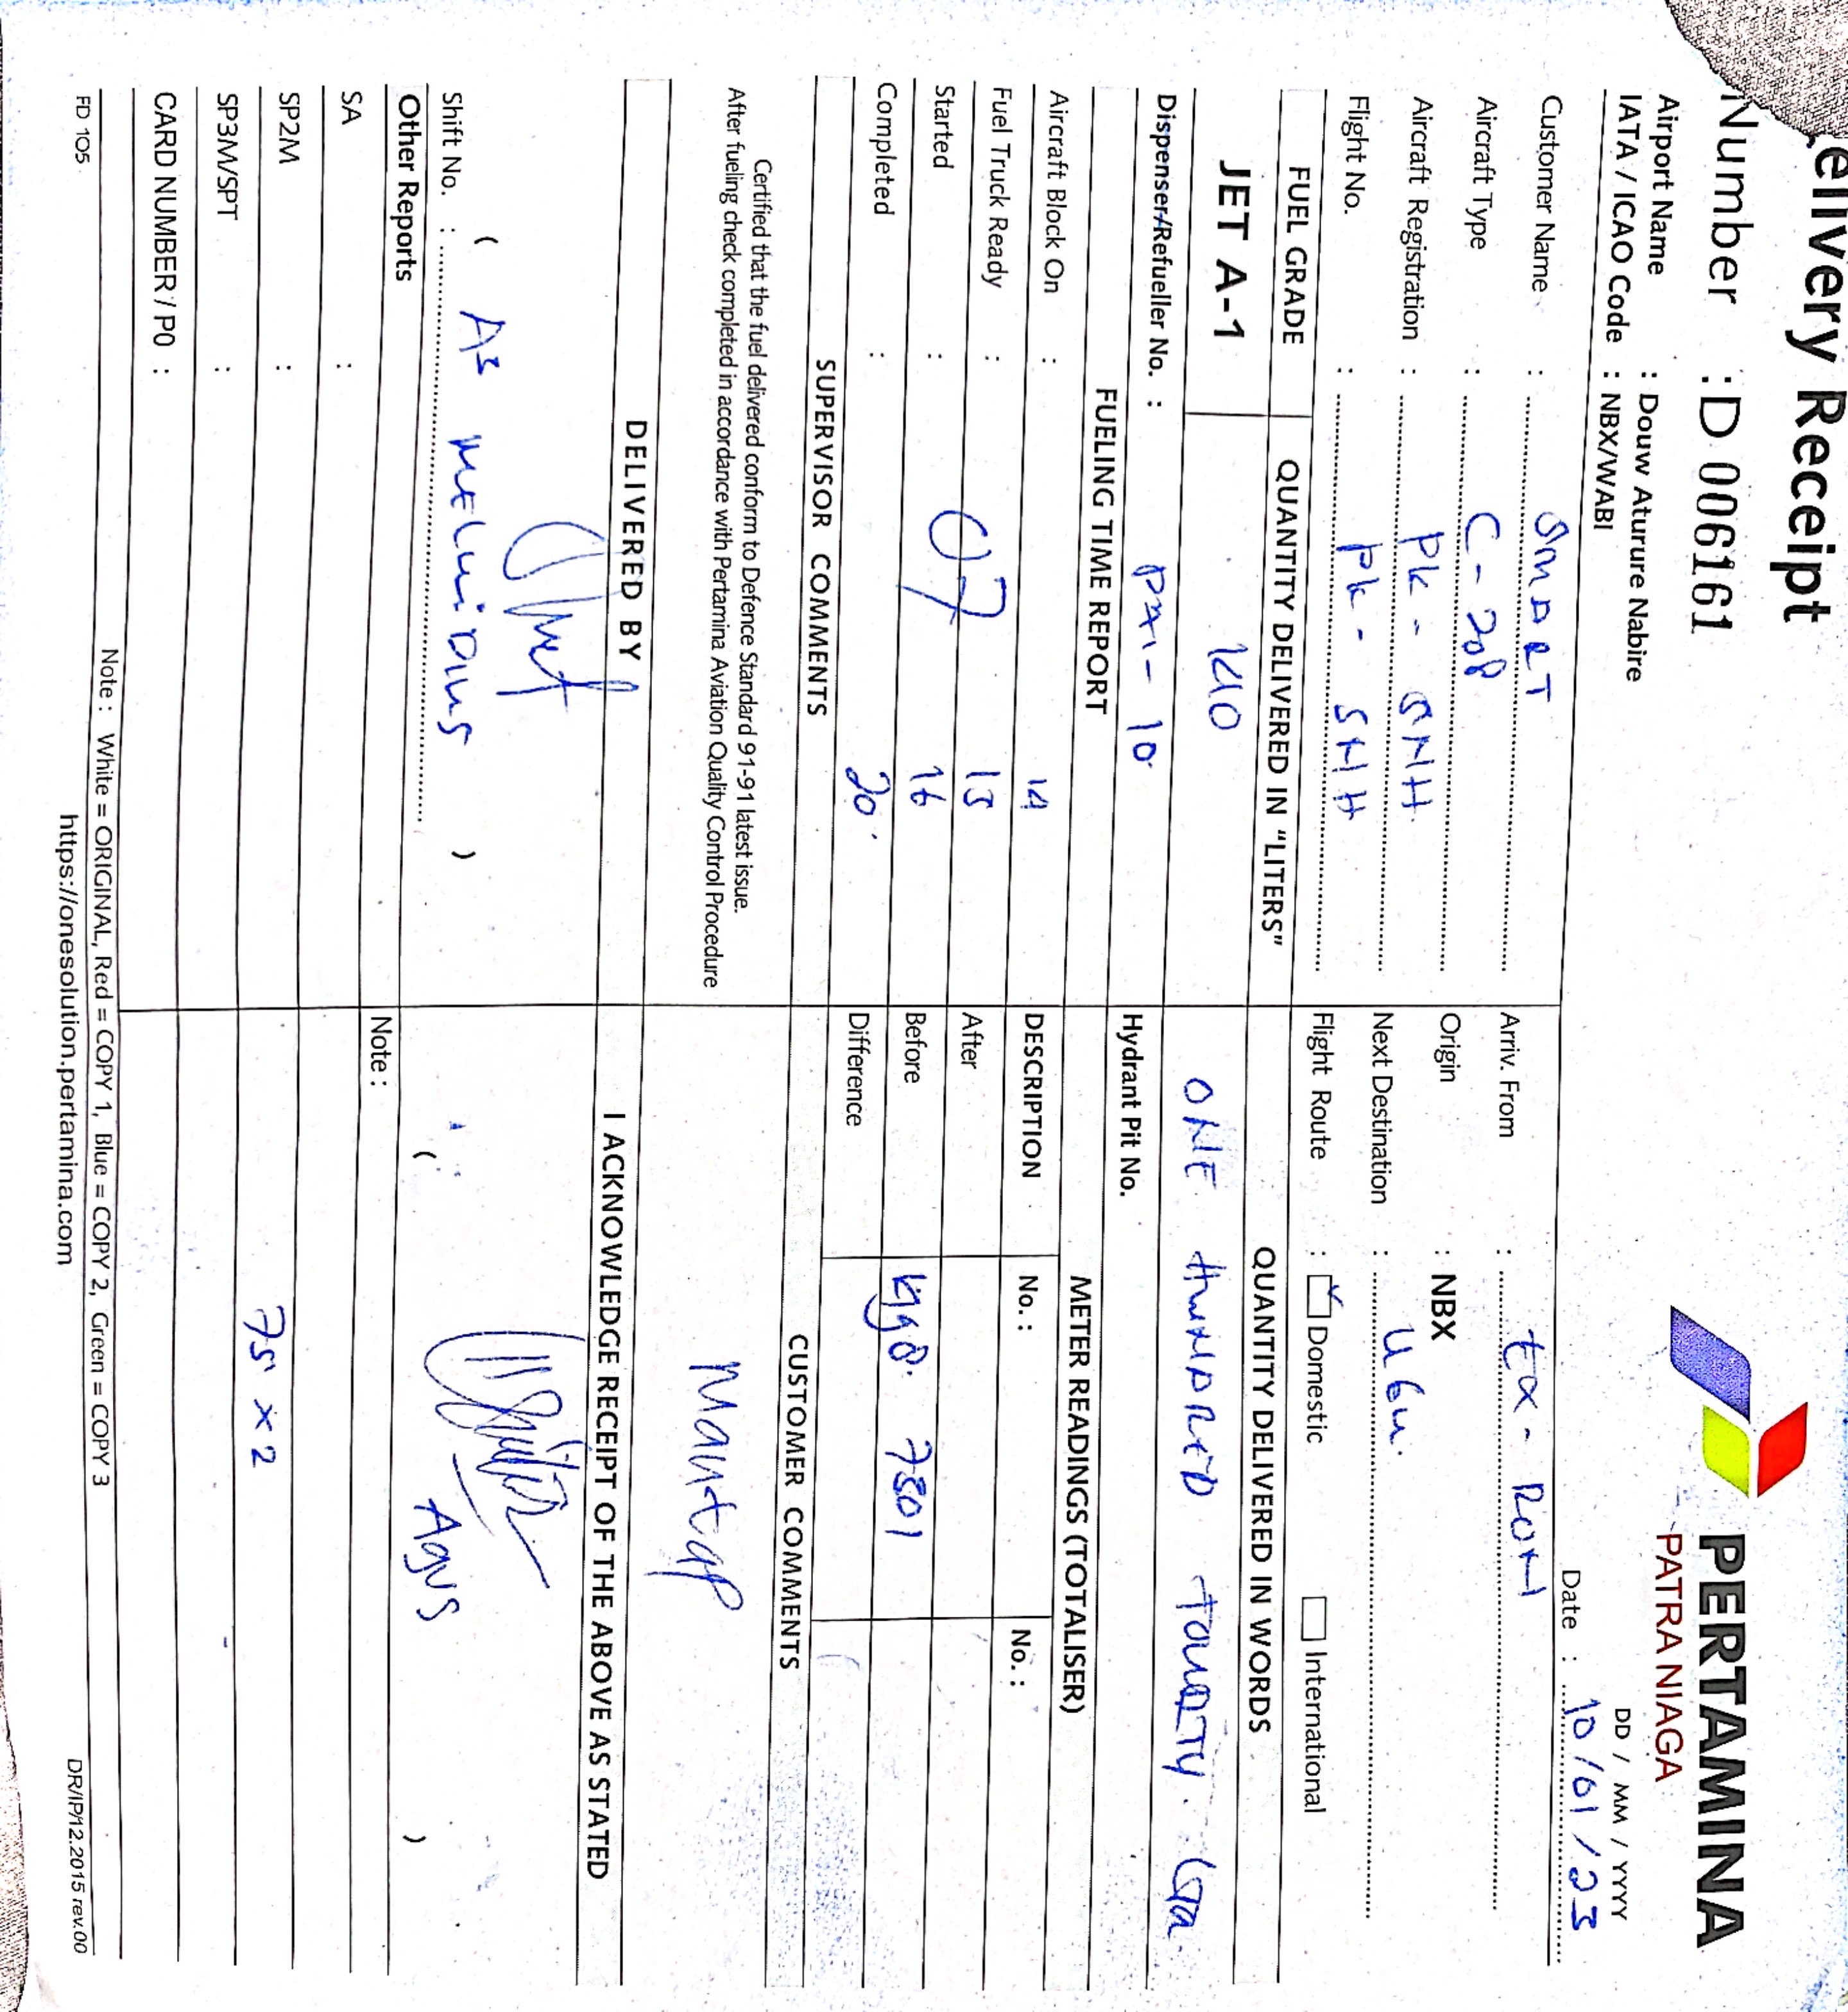 elivery Receipt
Number : D 006161
PERTAMINA
PATRA NIAGA
Airport Name : Douw Aturure Nabire
IATA / ICAO Code : NBX/WABI
DD / MM / YYYY
Date : 10/01/23
Customer Name : SMART
Arriv. From : EX - 
Aircraft Type : C - 208
Origin : NBX
Aircraft Registration : PK - SNH
Next Destination : UGU.
Flight No. : PK - SNH
Flight Route : Domestic International
FUEL GRADE QUANTITY DELIVERED IN "LITERS" QUANTITY DELIVERED IN WORDS
JET A-1 140 ONE HUNDRED FOURTY.
Dispenser/Refueller No. : 10
Hydrant Pit No.
FUELING TIME REPORT METER READINGS (TOTALISER)
Aircraft Block On : 14
DESCRIPTION No. : No. :
Fuel Truck Ready : 15
After
Started : 07 16
Before 7801
Completed : 20.
Difference
SUPERVISOR COMMENTS CUSTOMER COMMENTS
Certified that the fuel delivered conform to Defence Standard 91-91 latest issue.
After fueling check completed in accordance with Pertamina Aviation Quality Control Procedure
Mantap
DELIVERED BY I ACKNOWLEDGE RECEIPT OF THE ABOVE AS STATED
( )
( Agus )
Shift No. :
Other Reports Note :
SA :
SP2M : 75 x 2
SP3M/SPT :
CARD NUMBER / PO :
Note : White = ORIGINAL, Red = COPY 1, Blue = COPY 2, Green = COPY 3
FD 105 https://onesolution.pertamina.com DR/IP/12.2015 rev.00